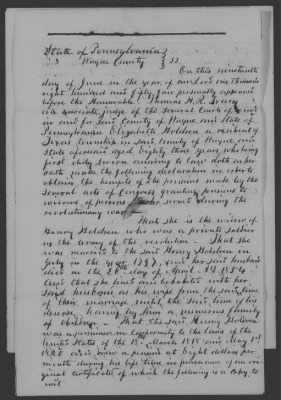 State of Pennsylvania }
Wayne County } SS.
On this nineteenth
day of June in the year of our Lord one thousand
eight hundred and fifty four personally appeared
before the Honorable Thomas H. R.
an associate judge of the several Courts of record
in and for said County of Wayne and State of
Pennsylvania Elizabeth Holdren a resident of
Texas Township in said County of Wayne and
State aforesaid aged eighty three years, who being
first duly sworn according to law doth upon
oath make the following declaration in order to
obtain the benefits of the provisions made by the
several acts of Congress granting pensions to
widows of persons who served during the
revolutionary war
That she is the widow of
Henry Holdren who was a private soldier
in the army of the revolution - That she
was married to the said Henry Holdren in
July in the year and her said husband
died on the 28th day of April AD 1854.
And that she lived and cohabited with her
said husband as his wife from the said time
of their marriage until the said time of his
decease, having by him a numerous family
of children - That the said Henry Holdren
was a pensioner in conformity to the laws of the
United States of the 18. March 1818 and May 1st
1820 and drew a pension at Eight dollars per
month during his life time in pursuance of an ori-
ginal certificate of which the following is a copy, to
wit